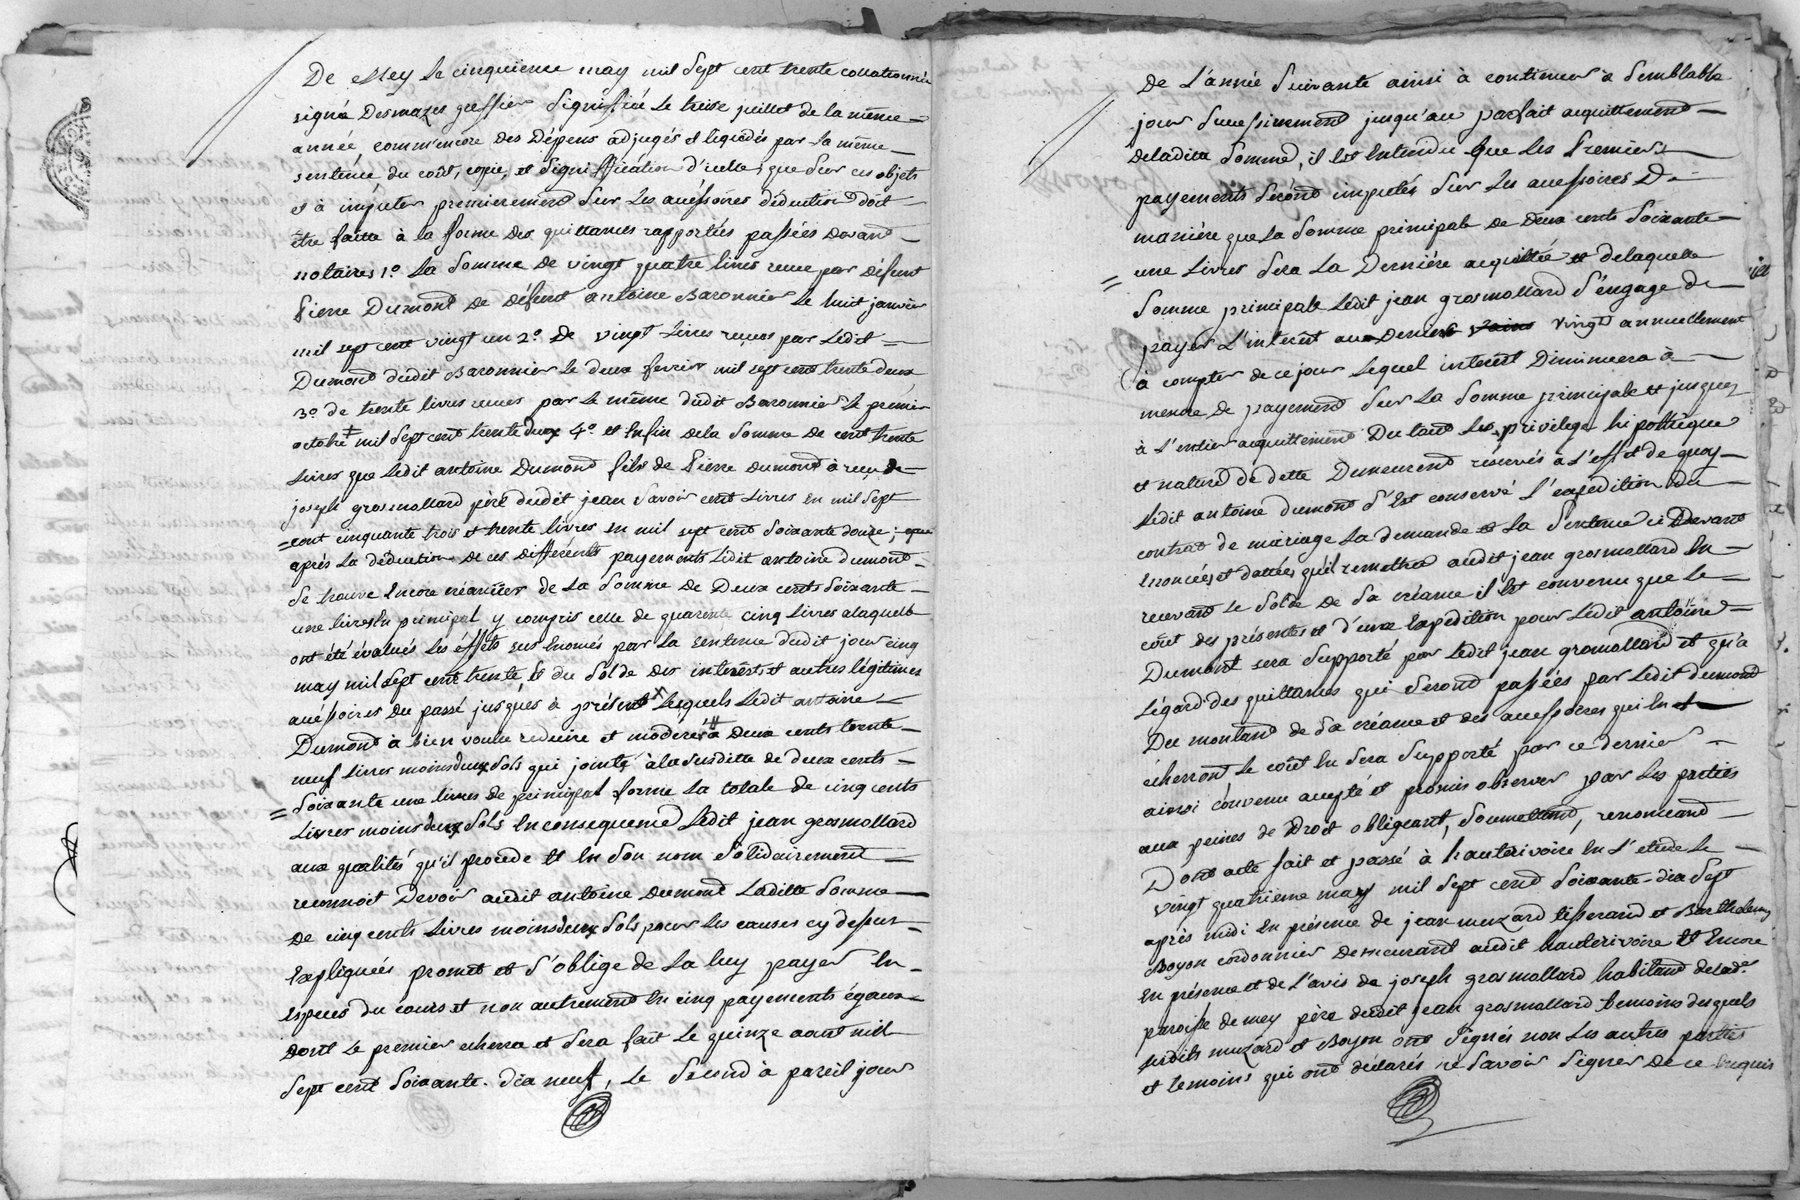 De Mey le cinquieme may mil sept cent trente collationnée
signé Desmazes greffier signifiée le treize juillet de la même
année comm'encore des Dépens adjugés et liquidés par la même
sentence du coût, copie, et signiffication d'icelle, que sur ces objets
et à imputer premierement sur les accéssoires déduction doit
être faitte à la forme des quittances rapportées passées devant
notaires 1.º La somme de vingt quatre livres reçue par défunt
Pierre Dumont de défunt antoine Baronnier le huit janvier
mil sept cent vingt un 2.º de vingt livres reçues par ledit
Dumont dudit Baronnier le deux fevrier mil sept cent trente deux
3.º de trente livres reçues par le même dudit Baronnier le premier
octobre mil sept cent trente deux 4.º et enfin de la somme de cent trente
livres que ledit antoine Dumont fils de Pierre Dumont à reçu de
joseph grosmollard père dudit jean savoir cent livres en mil sept
cent cinquante trois et trente livres en mil sept cent soixante douze ; que
après la déduction de ces différents payements ledit antoine dumont
se trouve encore créancier de la somme de Deux cents soixante
une livres en principal y compris celle de quarente cinq livres a laquelle
ont été évalués les éffets sus énoncés par la sentence dudit jour cinq
may mil sept cent trente, et du solde des interêts et autres légitimes
accéssoires du passé jusques à présent lesquels ledit antoine
Dumont à bien voulu reduire et moderer à deux cents trente
neuf livres moins deux sols qui joints à la susditte de deux cents
soixante une livres de principal forme la totale de cinq cents
livres moins deux sols en consequence ledit jean grosmollard
aux qualités qu'il procede et en son nom solidairement
reconnoit devoir audit antoine Dumont laditte somme
de cinq cents livres moins deux sols pour les causes cy dessus
expliquées promet et s'oblige de la luy payer en
espèces du cours et non autrement en cinq payements égaux
dont le premier echerra et sera fait le quinze aout mil
sept cent soixante-dix neuf, le second à pareil jour
De l'année suivante ainsi à continuer à semblable
jour successivement jusqu'au parfait acquittement
de ladite somme, il est entendu que les premiers
payements seront imputés sur les accessoires De
maniére que la somme principale de deux cents soixante
une livres sera la derniére acquittée et de laquelle
somme principale ledit jean grosmollard s'engage de
payer l'interêt au denier vingt annuellement
a compter de ce jour lequel interêt diminuera à
mesure de payement sur la somme principale et jusques
à l'entier acquittement Du tout les privilege hipothèque
et nature de dette Demeurent réservés à l'effet de quoy
ledit antoine dumont s'est conservé l'expédition du
contrat de mariage la demande et la sentence ci devant
enoncées et dattées qu'il remettra audit jean grosmollard en
recevant le solde de sa créance il est convenu que le
coût des présentes et d'une expédition pour ledit antoine
Dumont sera supporté par ledit jean grosmollard et qu'a
l'égard des quittances qui seront passées par ledit dumont
Du montant de sa créance et des accessoires qui en
écherront le coût en sera supporté par ce dernier
ainsi convenu accepté et promis observer par les parties
aux peines de droit obligeant, soumettant, renonceant
Dont acte fait et passé à hauterivoire en l'etude le
vingt quatrieme may mil sept cent soixante-dix sept
après midi en présence de jean muzard tisserand et Barthelemy
Boyon cordonnier demeurant audit hauterivoire et encore
en présence et de l'avis de joseph grosmollard habitant de lad.e
paroisse de mey père dudit jean grosmollard temoins desquels
susdits muzard et Boyon ont signés non les autres parties
et temoins qui ont déclarés ne savoir signer de ce enquis